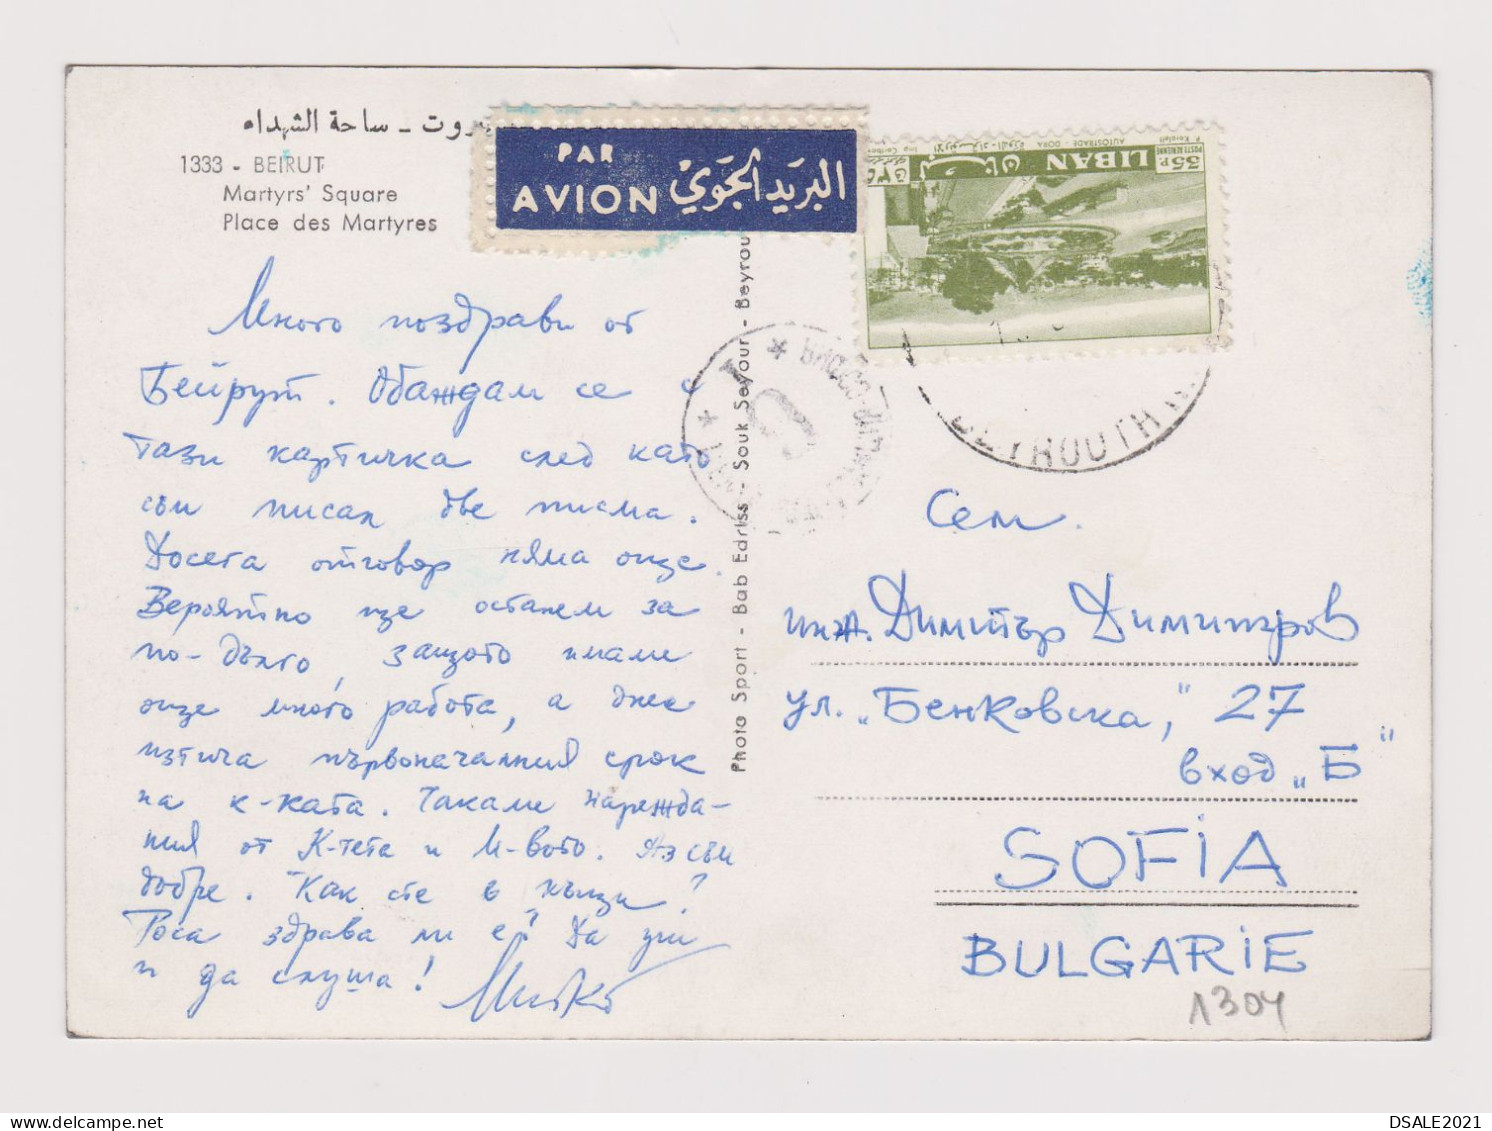 بيروت – ساحة الشهداء
1333 - BEIRUT
Martyrs' Square
Place des Martyres
PAR
AVION البريد الجوي
LIBAN
35P
POSTE AERIENNE
AUTOSTRADE - DORA
BEYROUTH
Photo Sport - Bab Edriss - Souk Seyour - Beyrou
Много поздрави от
Бейрут. Обаждам се с
тази картичка след като
съм писал две писма.
Досега отговор няма още.
Вероятно ще останем за
по-дълго, защото имаме
още много работа, а днес
изтича първоначалния срок
на к-ката. Чакаме нарежда-
ния от К-тета и М-вото. Аз съм
добре. Как сте в къщи?
Роса здрава ли е? Да учи
и да слуша! Митко
Сем.
инж. Димитър Димитров
ул. „Бенковска," 27
вход „Б"
SOFiA
BULGARiE
1304
DSALE2021